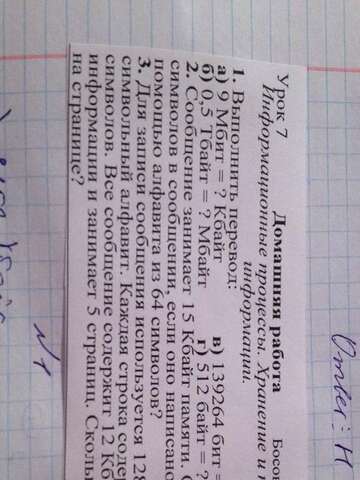 Домашняя работа
Урок 7 Босов
Информационные процессы. Хранение и
информации.
1. Выполнить перевод:
а) 9 Мбит = ? Кбайт в) 139264 бит =
б) 0,5 Тбайт = ? Мбайт г) 512 байт = ?
2. Сообщение занимает 15 Кбайт памяти. С
символов в сообщении, если оно написано
помощью алфавита из 64 символов?
3. Для записи сообщения используется 128
символьный алфавит. Каждая строка соде
символов. Все сообщение содержит 12 Кб
информации и занимает 5 страниц. Сколь
на странице?
Ответ: Н
№1